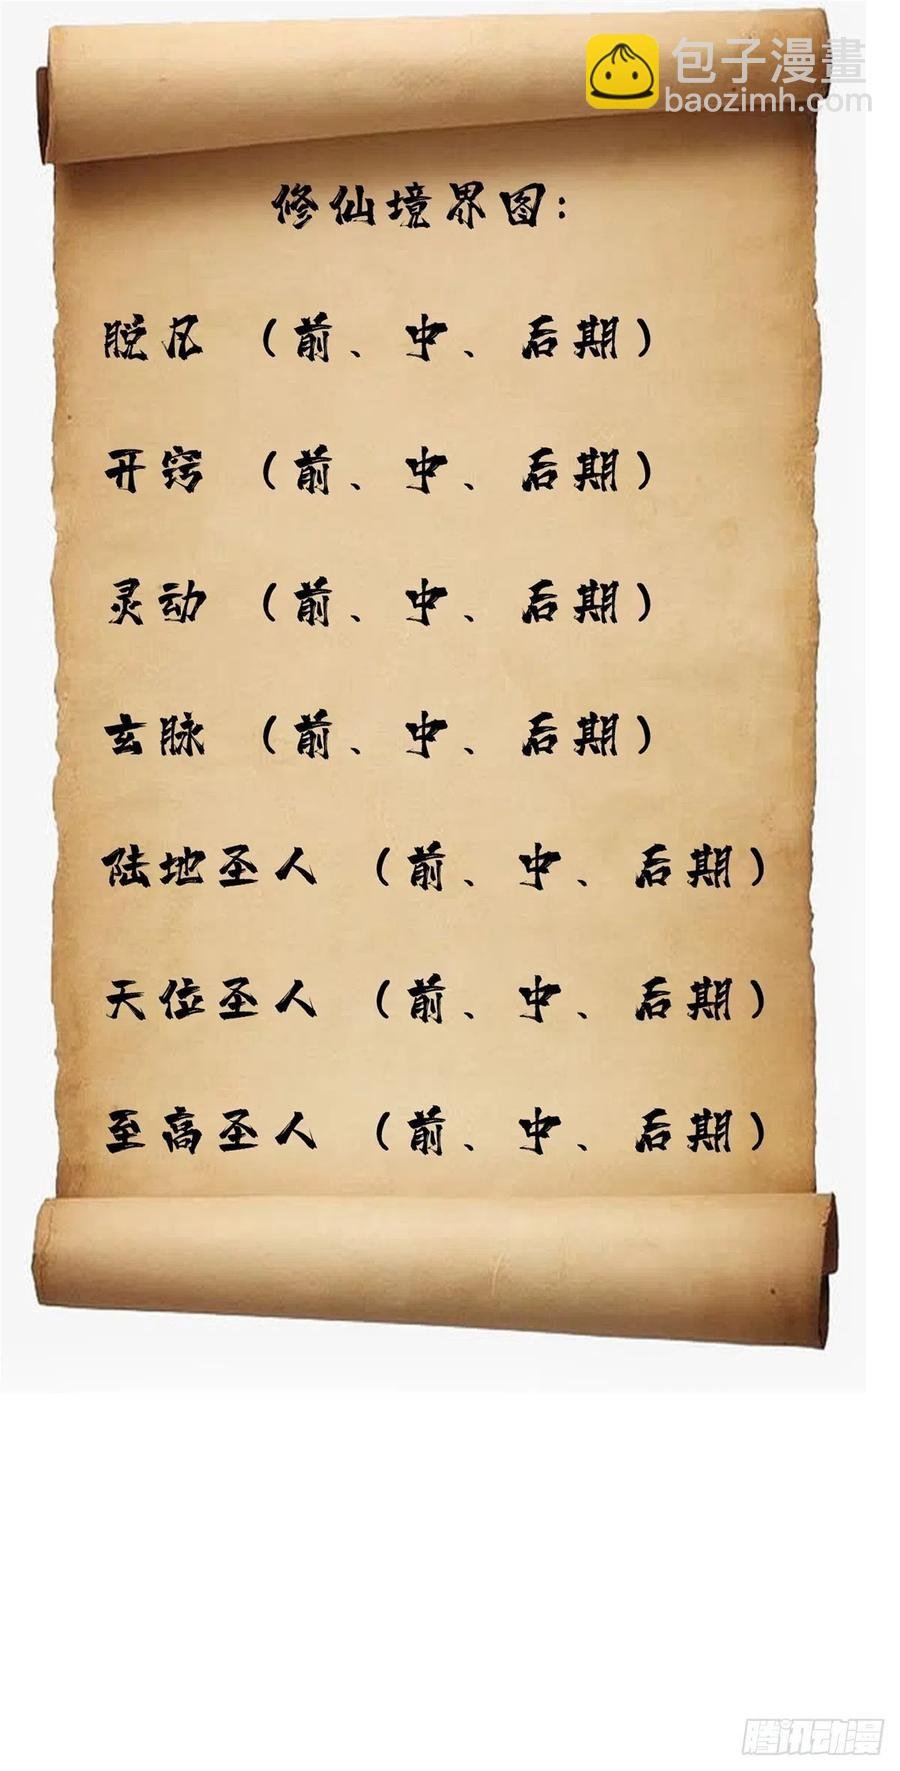 包子漫畫
baozimh.com
修仙境界图：
脱凡（前、中、后期）
开窍（前、中、后期）
灵动（前、中、后期）
玄脉（前、中、后期）
陆地圣人（前、中、后期）
天位圣人（前、中、后期）
至高圣人（前、中、后期）
腾讯动漫